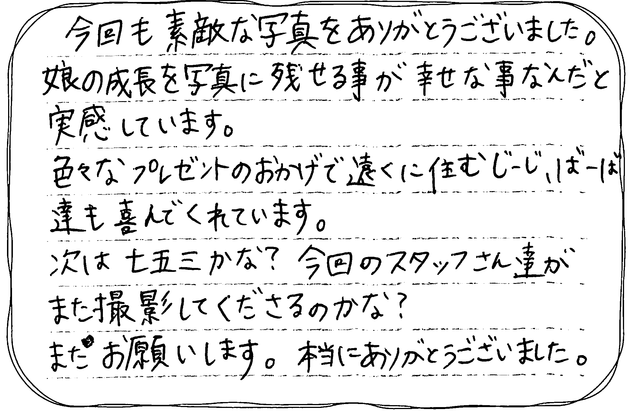 今回も素敵な写真をありがとうございました。
娘の成長を写真に残せる事が幸せな事なんだと
実感しています。
色々なプレゼントのおかげで遠くに住むじーじ、ばーば
達も喜んでくれています。
次は七五三かな？今回のスタッフさん達が
また撮影してくださるのかな？
またお願いします。本当にありがとうございました。